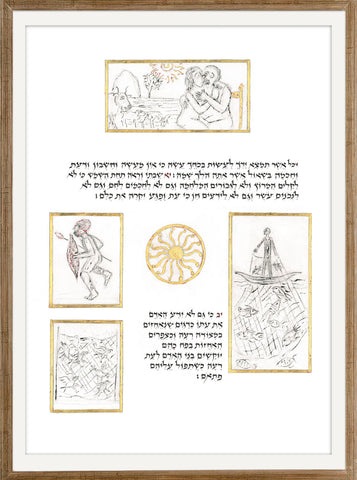 י כל אשר תמצא ידך לעשות בכחך עשה כי אין מעשה וחשבון ודעת
וחכמה בשאול אשר אתה הלך שמה : יא שבתי וראה תחת השמש כי לא
לקלים המרוץ ולא לגבורים המלחמה וגם לא לחכמים לחם וגם לא
לנבנים עשר וגם לא לידעים חן כי עת ופגע יקרה את כלם :
יב כי גם לא ידע האדם
את עתו כדגים שנאחזים
במצודה רעה וכצפרים
האחזות בפח כהם
יוקשים בני האדם לעת
רעה כשתפול עליהם
פתאם :